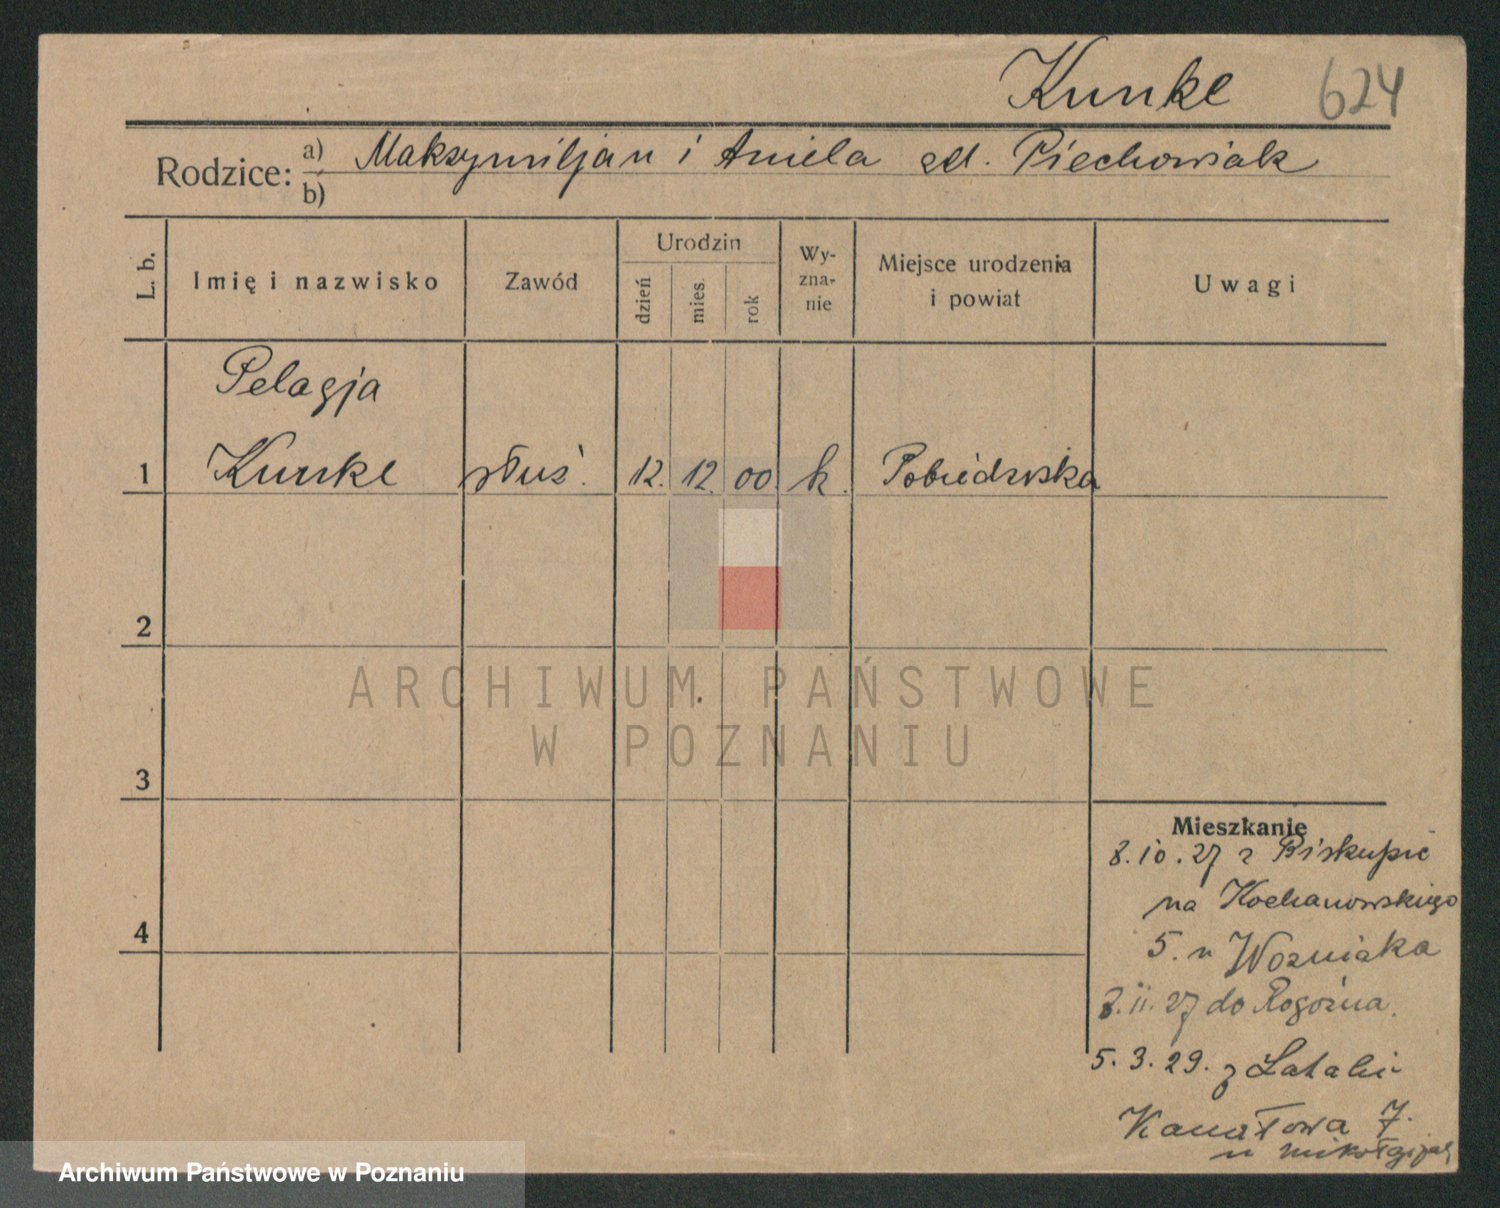 Kunke 624
Rodzice: a) Maksymiljan i Aniela zd. Piechowiak
b)
L. b. Imię i nazwisko Zawód Urodzin dzień mies. rok Wy-zna-nie Miejsce urodzenia i powiat Uwagi
Pelagja
1 Kunke służ. 12. 12. 00 k. Pobiedziska
2
ARCHIWUM PAŃSTWOWE
W POZNANIU
3
Mieszkanie
8.10.27 z Biskupic
na Kochanowskiego
4
5. u Wozniaka
8.11.27 do Rogoźna.
5.3.29. z Latalic
Kanałowa 7.
u
Archiwum Państwowe w Poznaniu